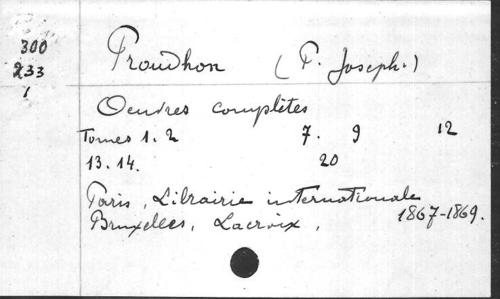 300
233
1
Proudhon (P. Joseph.)
Oeuvres complètes
Tomes 1. 2 7. 9 12
13. 14. 20
Paris, Librairie internationale
Bruxelles, Lacroix, 1867-1869.